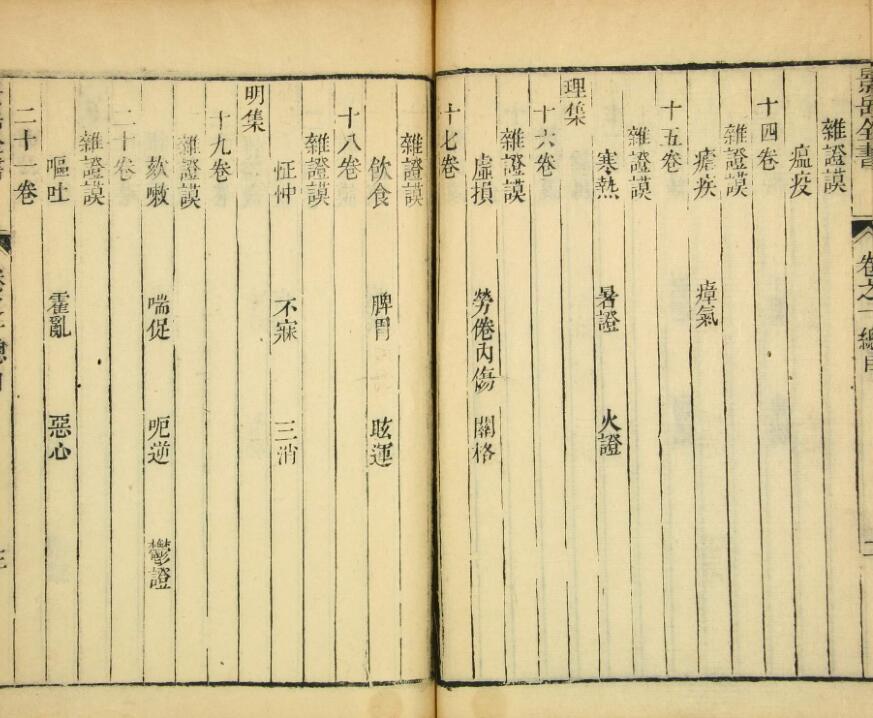 景岳全書 卷之一總目 二
雜證謨
瘟疫
十四卷
雜證謨
瘧疾 瘴氣
十五卷
雜證謨
寒熱 暑證 火證
理集
十六卷
雜證謨
虛損 勞倦內傷 關格
十七卷
雜證謨
飲食 脾胃 眩運
十八卷
雜證謨
怔忡 不寐 三消
明集
十九卷
雜證謨
欬嗽 喘促 呃逆 鬱證
二十卷
雜證謨
嘔吐 霍亂 惡心
二十一卷